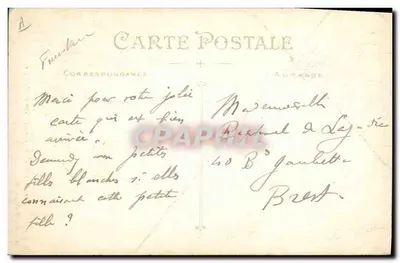 A
CARTE POSTALE
CORRESPONDANCE
ADRESSE
Merci pour votre jolie
carte qui est bien
arrivée.
Demandez aux petits
filles blanches si elles
connaissent cette petite
fille ?
Mademoiselle
de
40 Bd Gambetta
Brest
CPAPHIL